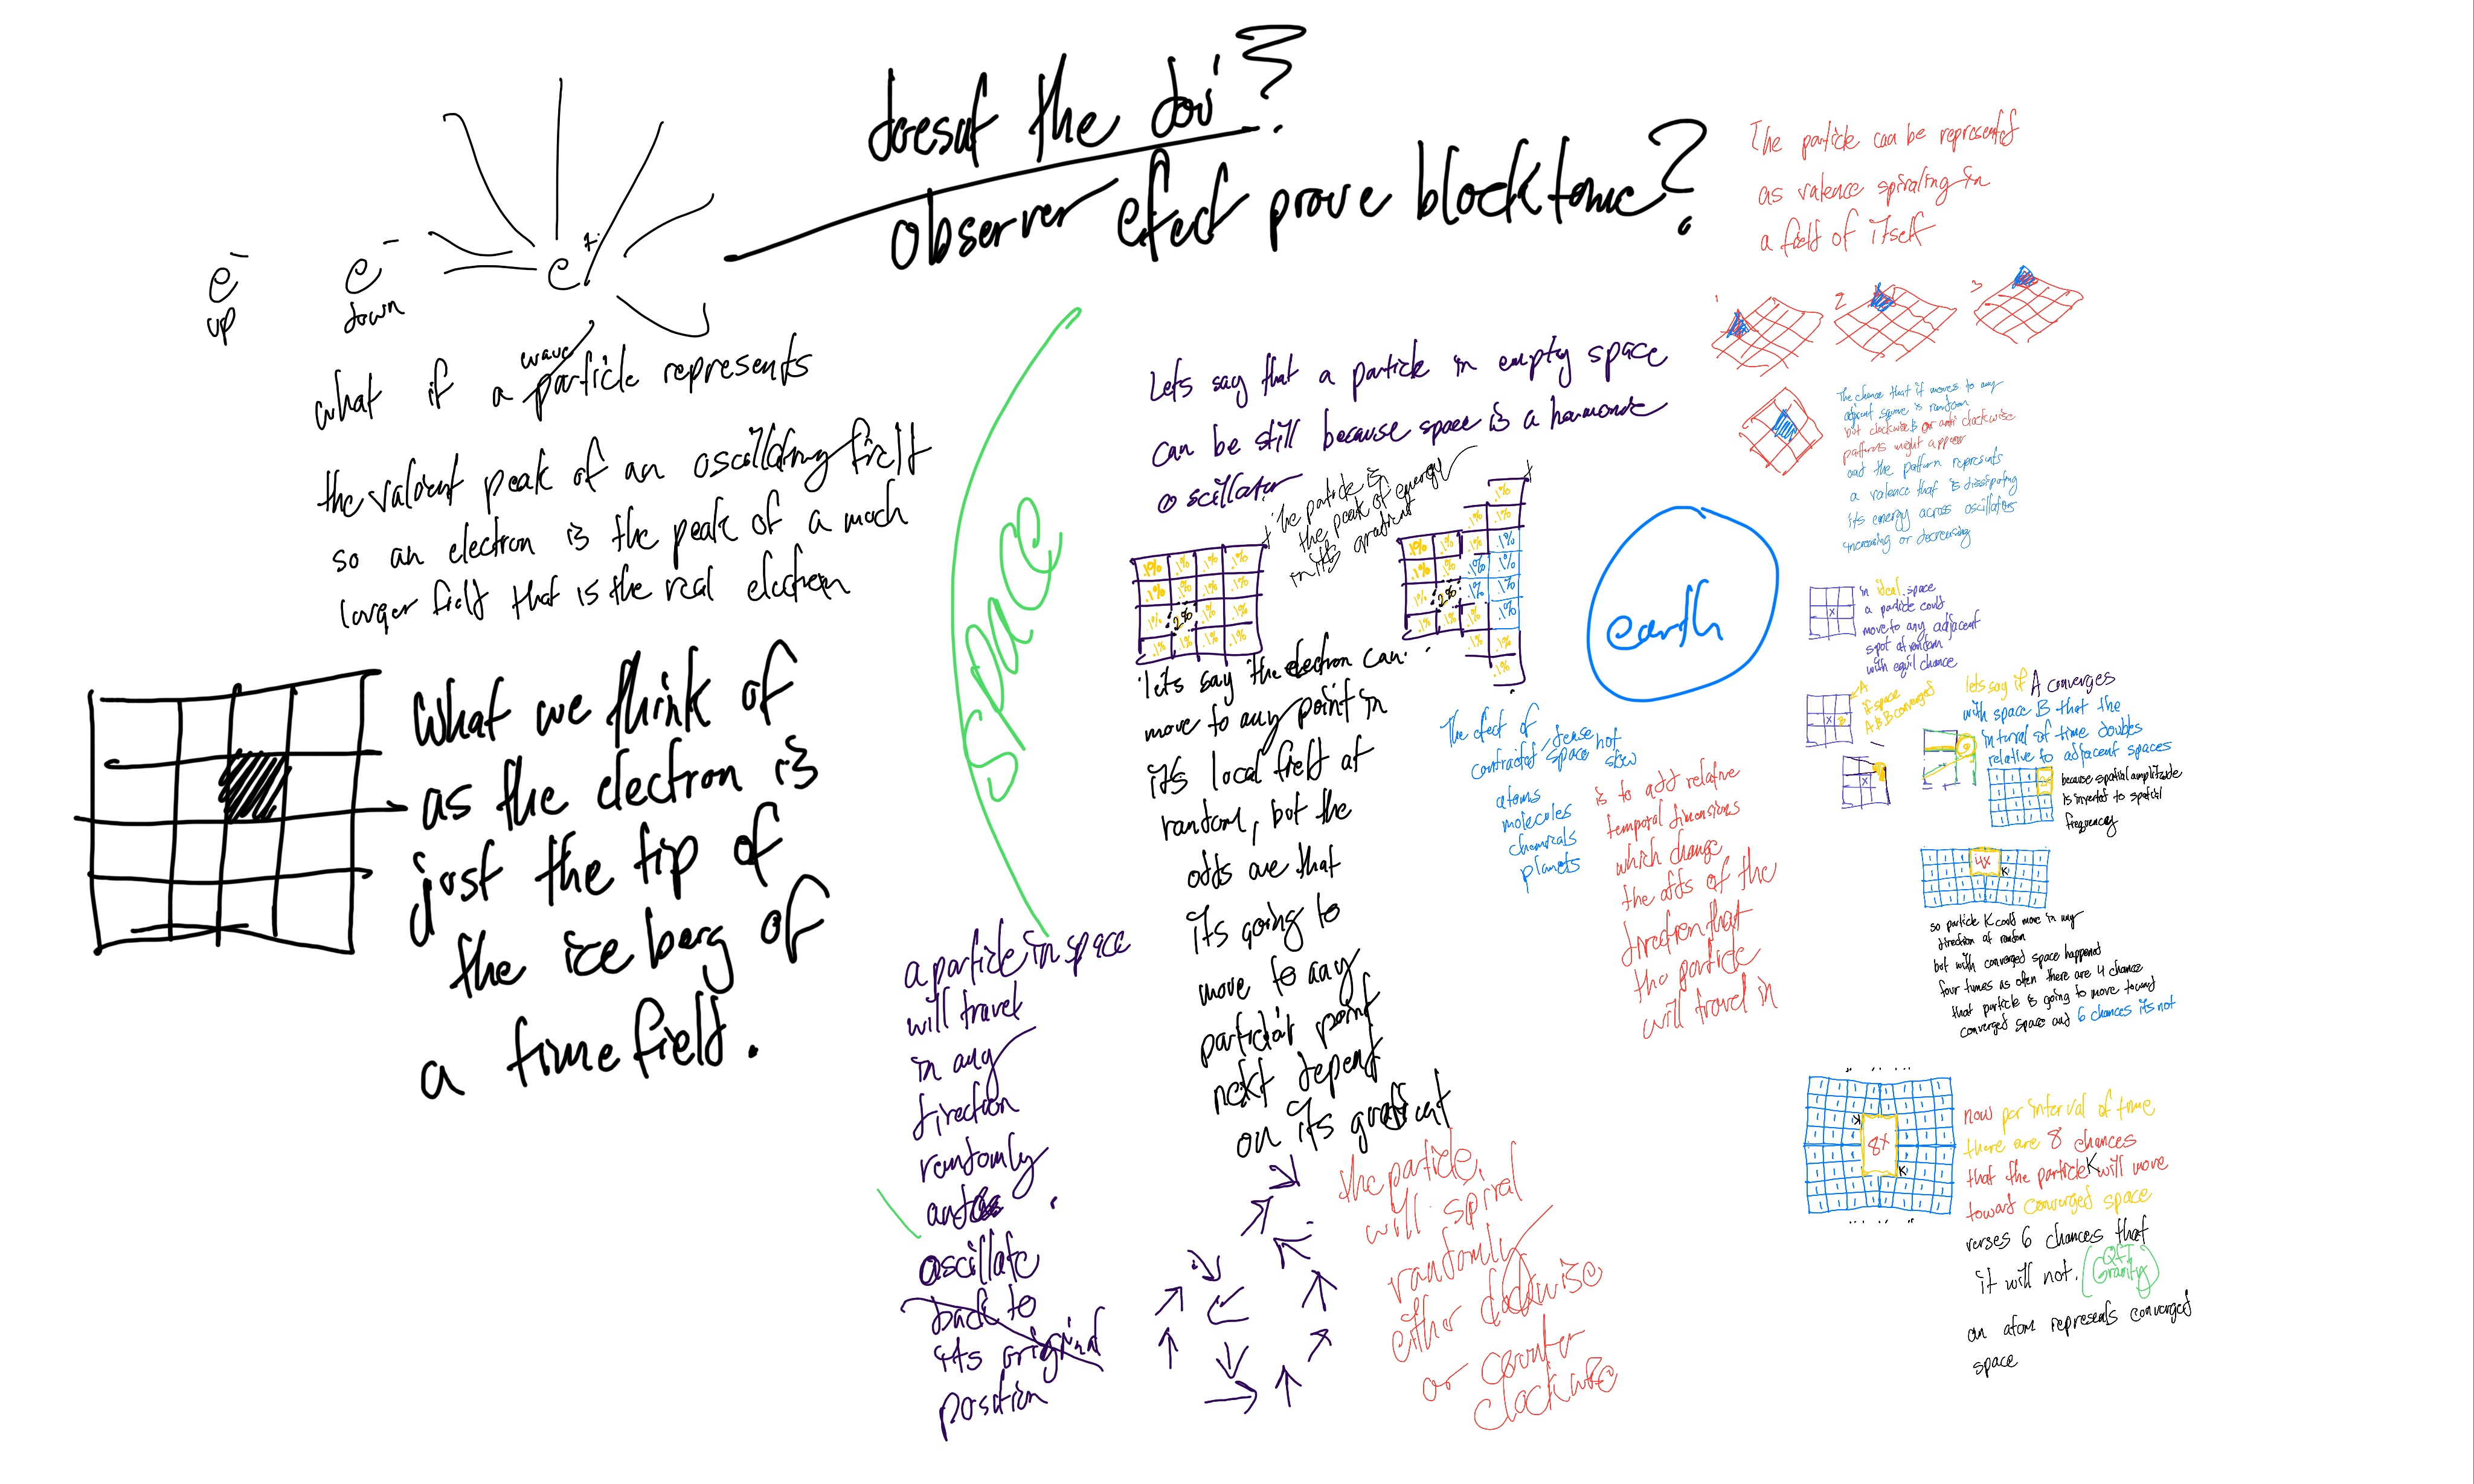 doesnt the
observer efect prove block time?
e-
up
e-
down
e+
what if a particle represents
wave
the valent peak of an oscillating field
so an electron is the peak of a much
larger field that is the real electron
What we think of
as the electron is
just the tip of
the ice berg of
a time field.
space
a particle in space
will travel
in any
direction
randomly
oscillate
back to
its original
position
Lets say that a particle in empty space
can be still because space is a harmonic
oscillator
The particle is
the peak of energy
in its gradient
.1% .1% .1% .1%
.1% .1% .1% .1%
.1% .2% .1% .1%
.1% .1% .1%
.1%
.1% .1%
.1% .1% .1% .1%
.1% .1% .1% .1%
.1% .2% .1% .1%
.1%
.1%
lets say the electron can
move to any point in
it's local field at
random, but the
odds are that
its going to
move to any
next depent
on its gradient
the particle
will spiral
randomly
either clockwise
or counter
clockwise
earth
The efect of
contracted dense space
not
slow
atoms
molecules
chemicals
planets
is to add relative
temporal dimensions
which change
the odds of the
direction that
the particle
will travel in
The particle can be represented
as valence spiraling in
a field of itself
1
2
3
The chance that it moves to any
adjcent square is random
but clockwise or anti clockwise
patturns might appear
and the patturn represents
a valence that is dissipating
its energy across oscillators
increasing or decreasing
X
in ideal space
a particle could
move to any adjacent
spot at random
with equil chance
A
X B
if space
A & B converged
X
lets say if A converges
with space B that the
intural of time doubles
relative to adjacent spaces
because spatial amplitude
is inverted to spatial
frequency
4x
K
so particle K could move in any
direction at random
but with converged space happened
four times as often there are 4 chance
that particle is going to move toward
converged space and 6 chances its not
K
8x
K
now per interval of time
there are 8 chances
that the particle K will move
toward converged space
verses 6 chances that
it will not.
(QFT
Gravity)
an atom represents converged
space